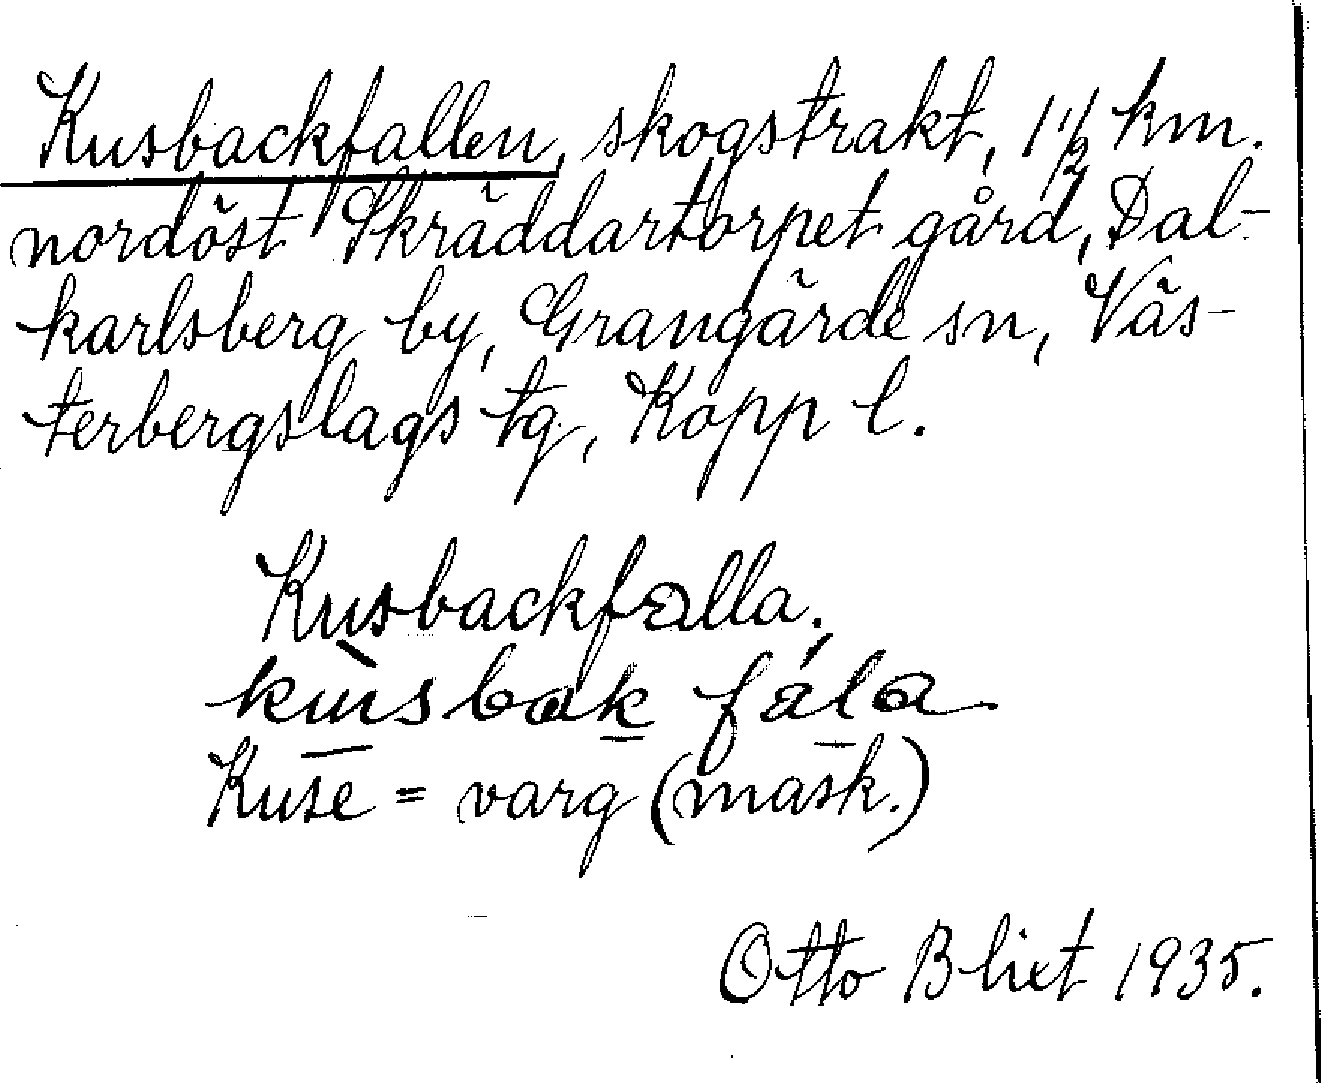 Kusbackfallen, skogstrakt, 1 1/2 km.
nordöst Skräddartorpet gård, Dal-
karlsberg by, Grangärde sn, Väs-
terbergslags tg, Kopp l.
Kusbackfalla,
kùsbak fála
Kuse = varg (mask.)
Otto Blixt 1935.